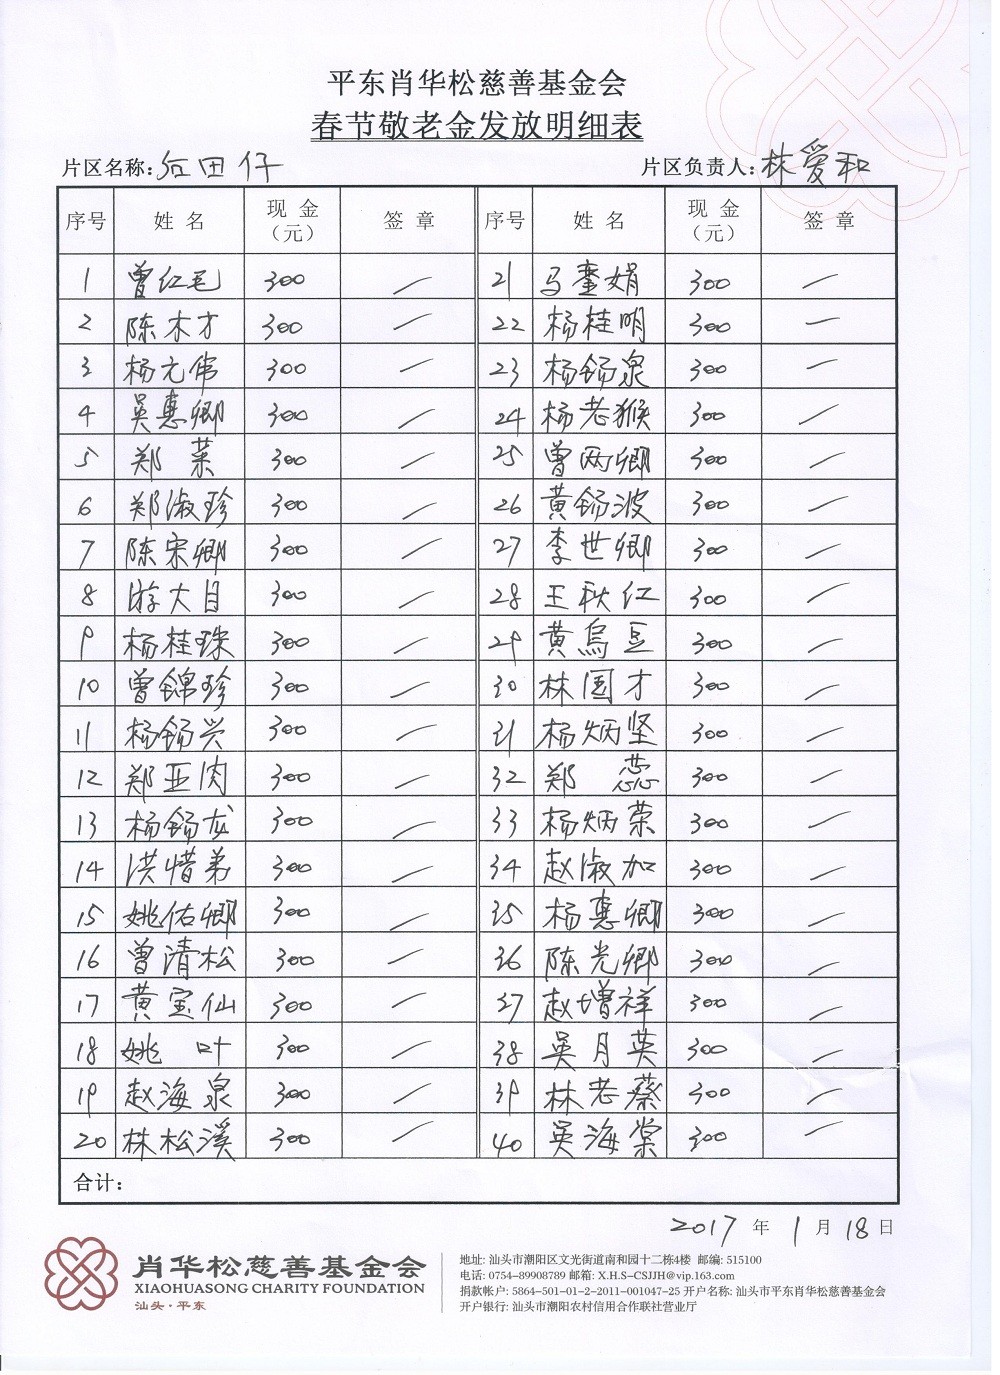 平东肖华松慈善基金会
春节敬老金发放明细表
片区名称:后田仔 片区负责人:林爱和
序号 姓名 现金（元） 签章 序号 姓名 现金（元） 签章
1 曾红毛 300 21 马銮娟 300
2 陈木才 300 22 杨桂明 300
3 杨元伟 300 23 杨钖泉 300
4 吴惠卿 300 24 杨老猴 300
5 郑菜 300 25 曾两卿 300
6 郑淑珍 300 26 黄钖波 300
7 陈宋卿 300 27 李世卿 300
8 游大目 300 28 王秋红 300
9 杨桂珠 300 29 黄乌豆 300
10 曾锦珍 300 30 林国才 300
11 杨钖兴 300 31 杨炳坚 300
12 郑亚肉 300 32 郑蕊 300
13 杨钖龙 300 33 杨炳荣 300
14 洪惜弟 300 34 赵淑加 300
15 姚佑卿 300 35 杨惠卿 300
16 曾清松 300 36 陈光卿 300
17 黄宝仙 300 37 赵增祥 300
18 姚叶 300 38 吴月英 300
19 赵海泉 300 39 林老蔡 300
20 林松溪 300 40 吴海棠 300
合计：
2017 年 1 月 18 日
肖华松慈善基金会
XIAOHUASONG CHARITY FOUNDATION
汕头·平东
地址: 汕头市潮阳区文光街道南和园十二栋4楼 邮编: 515100
电话: 0754-89908789 邮箱: X.H.S-CSJJH@vip.163.com
捐款帐户: 5864-501-01-2-2011-001047-25 开户名称: 汕头市平东肖华松慈善基金会
开户银行: 汕头市潮阳农村信用合作联社营业厅